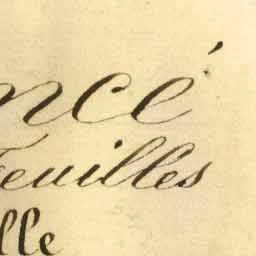 ncé
Feuilles
lle